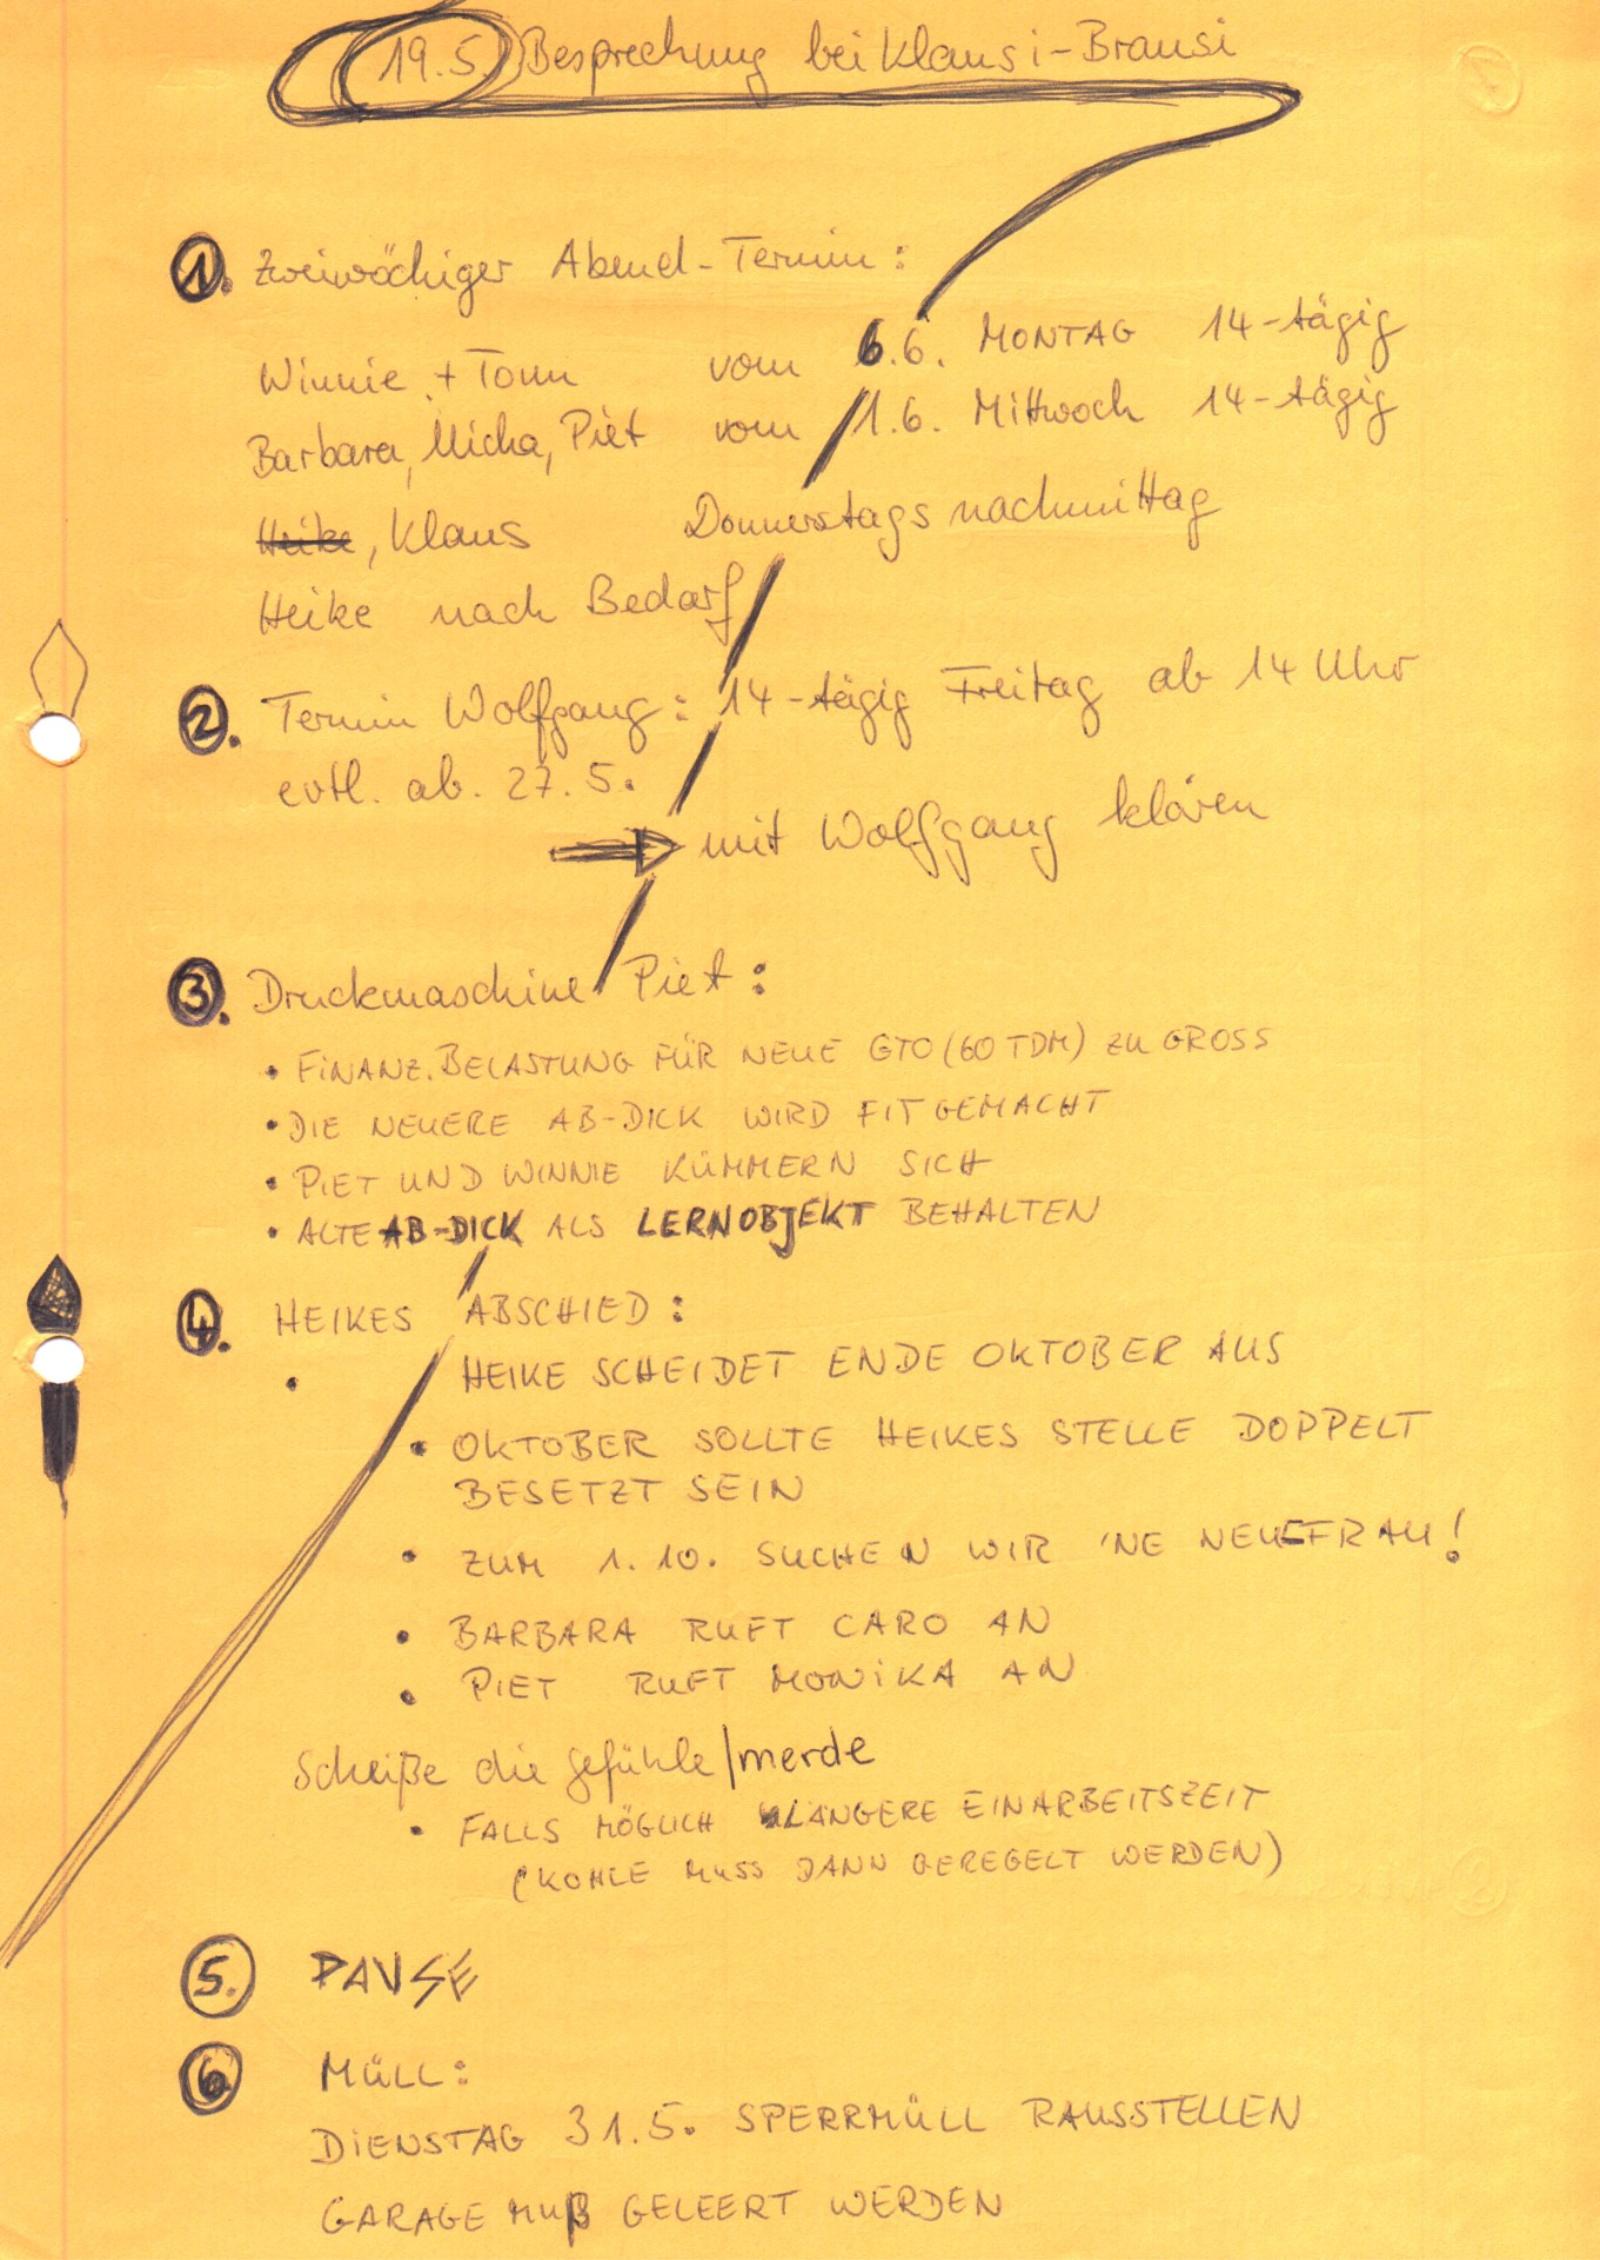 19.5. Besprechung bei Klausi-Brausi
1. Zweiwöchiger Abend-Termin:
Winnie + Tom vom 6.6. MONTAG 14-tägig
Barbara, Micha, Piet vom 1.6. Mittwoch 14-tägig
Heike, Klaus Donnerstags nachmittag
Heike nach Bedarf
2. Termin Wolfgang: 14-tägig Freitag ab 14 Uhr
evtl. ab. 27.5.
mit Wolfgang klären
3. Druckmaschine Piet:
• FINANZ. BELASTUNG FÜR NEUE GTO (60 TDM) ZU GROSS
• DIE NEUERE AB-DICK WIRD FIT GEMACHT
• PIET UND WINNIE KÜMMERN SICH
• ALTE AB-DICK ALS LERNOBJEKT BEHALTEN
4. HEIKES ABSCHIED:
• HEIKE SCHEIDET ENDE OKTOBER AUS
• OKTOBER SOLLTE HEIKES STELLE DOPPELT
BESETZT SEIN
• ZUM 1.10. SUCHEN WIR 'NE NEUE FRAU!
• BARBARA RUFT CARO AN
• PIET RUFT MONIKA AN
Scheiße die Gefühle/merde
• FALLS MÖGLICH LÄNGERE EINARBEITSZEIT
(KOHLE MUSS DANN GEREGELT WERDEN)
5. PAUSE
6 MÜLL:
DIENSTAG 31.5. SPERRMÜLL RAUSSTELLEN
GARAGE MUß GELEERT WERDEN